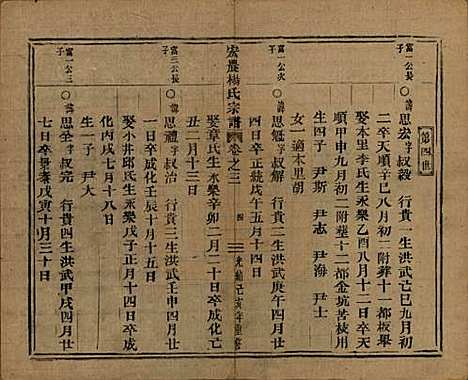 第四世
富一公長子
○諱思宏字叔毅 行貴一生洪武己巳九月初
二卒天順辛巳八月初二附葬十一都板舉
娶本里李氏生永樂乙酉八月十二日卒天
順甲申九月初二附墓十二都金坑苦枝用
生四子 尹斯 尹志 尹海 尹士
女一適本里胡
富一公次子
○諱思 字叔 行貴二生洪武庚午四月廿
四日卒正統戊午五月十四日
宏農楊氏宗譜 卷之三 四 光緒己亥年重修
娶章氏生永樂辛卯二月二十日卒成化己
丑二月十三日
富三公長子
○諱思禮字叔治 行貴三生洪武壬申四月初
一日卒成化壬辰十月十五日
娶小井邱氏生永樂戊子正月十四日卒成
化丙戌七月十八日
生一子 尹大
富一公三子
○諱思全字叔完 行貴四生洪武甲戌四月廿
七日卒景泰戊寅十月三十日